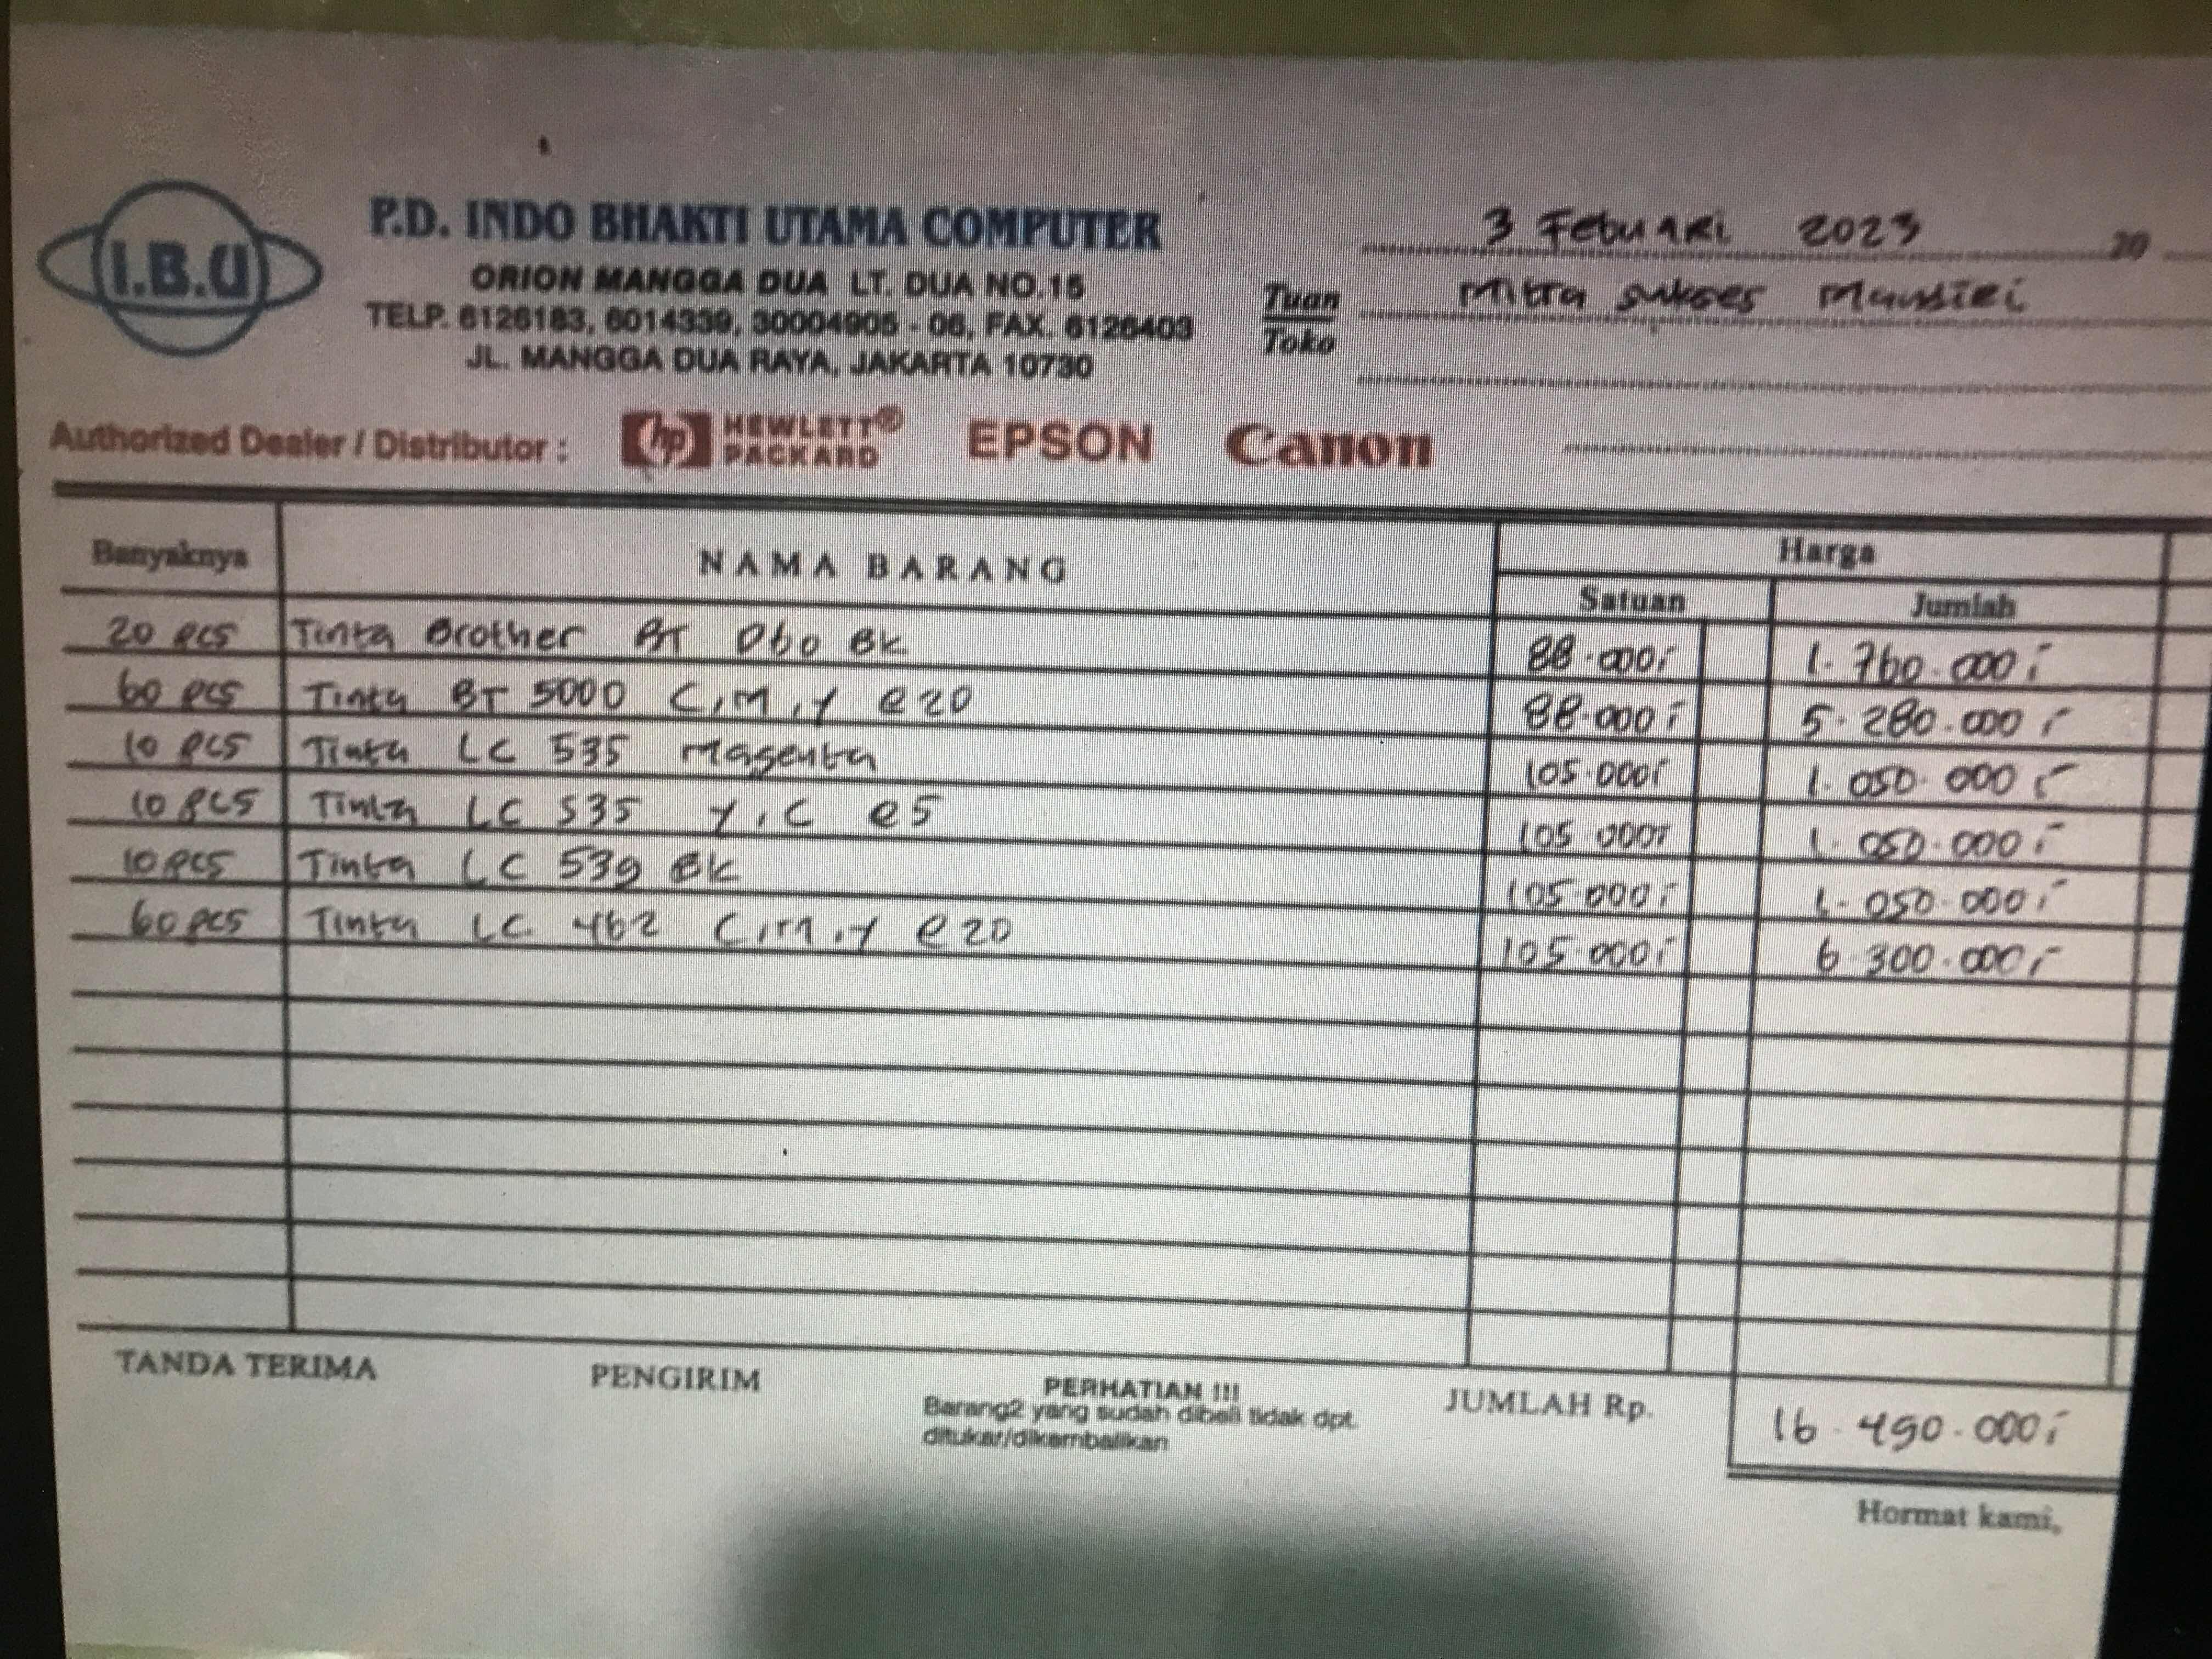 I.B.U
P.D. INDO BHAKTI UTAMA COMPUTER
ORION MANGGA DUA LT. DUA NO.15
TELP. 6126183, 6014339, 30004905 - 06, FAX. 6126403
JL. MANGGA DUA RAYA, JAKARTA 10730
3 Febuari 2023 20
Tuan Mitra sukses Mandiri
Toko
Authorized Dealer / Distributor : hp HEWLETT® PACKARD EPSON Canon
Banyaknya NAMA BARANG Harga
Satuan Jumlah
20 pcs Tinta Brother BT D60 BK 88.000,- 1.760.000,-
60 pcs Tinta BT 5000 C,M,Y @20 88.000,- 5.280.000,-
10 pcs Tinta LC 535 Magenta 105.000,- 1.050.000,-
10 pcs Tinta LC 535 Y,C @5 105.000,- 1.050.000,-
10 pcs Tinta LC 539 BK 105.000,- 1.050.000,-
60 pcs Tinta LC 462 C,M,Y @20 105.000,- 6.300.000,-
TANDA TERIMA PENGIRIM PERHATIAN !!! JUMLAH Rp. 16.490.000,-
Barang2 yang sudah dibeli tidak dpt.
ditukar/dikembalikan
Hormat kami,